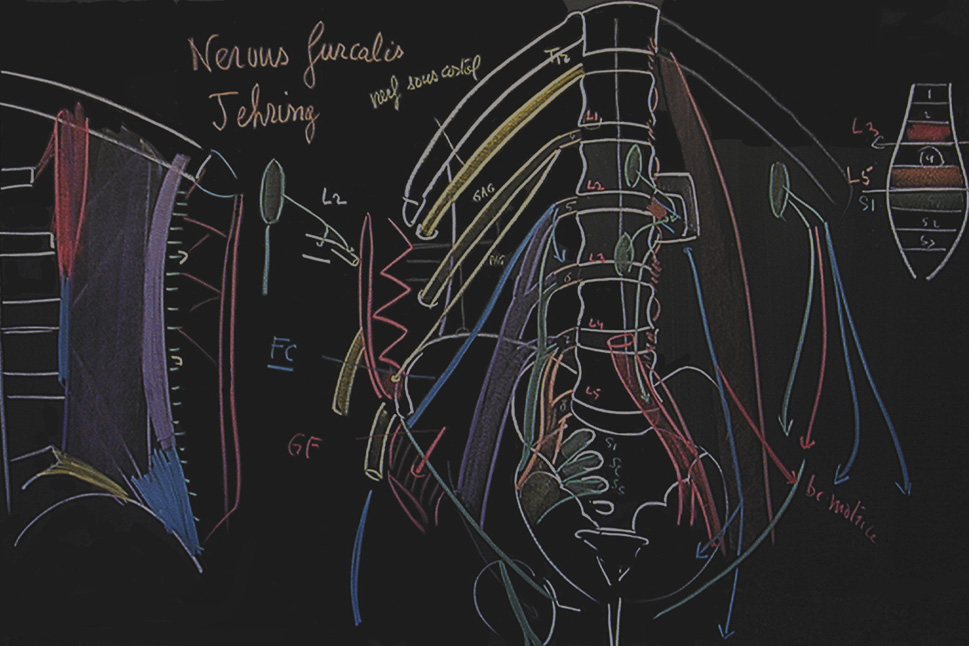 Nervus furcalis
Jehring
nerf sous costal
T12
L1
L2
L3
L4
L5
S1
L2
FC
GF
L3
L5
S1
1
2
(4
S1
S2
S3
bc motrice